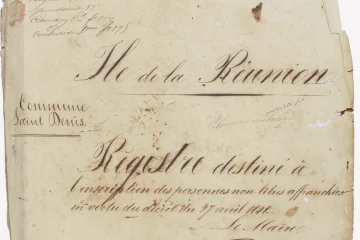 Ile de la Réunion
Commune
Saint Denis
Régistre destiné à
l'inscription des personnes non libres affranchies
en vertu du décret du 27 avril 1848
Le Maire